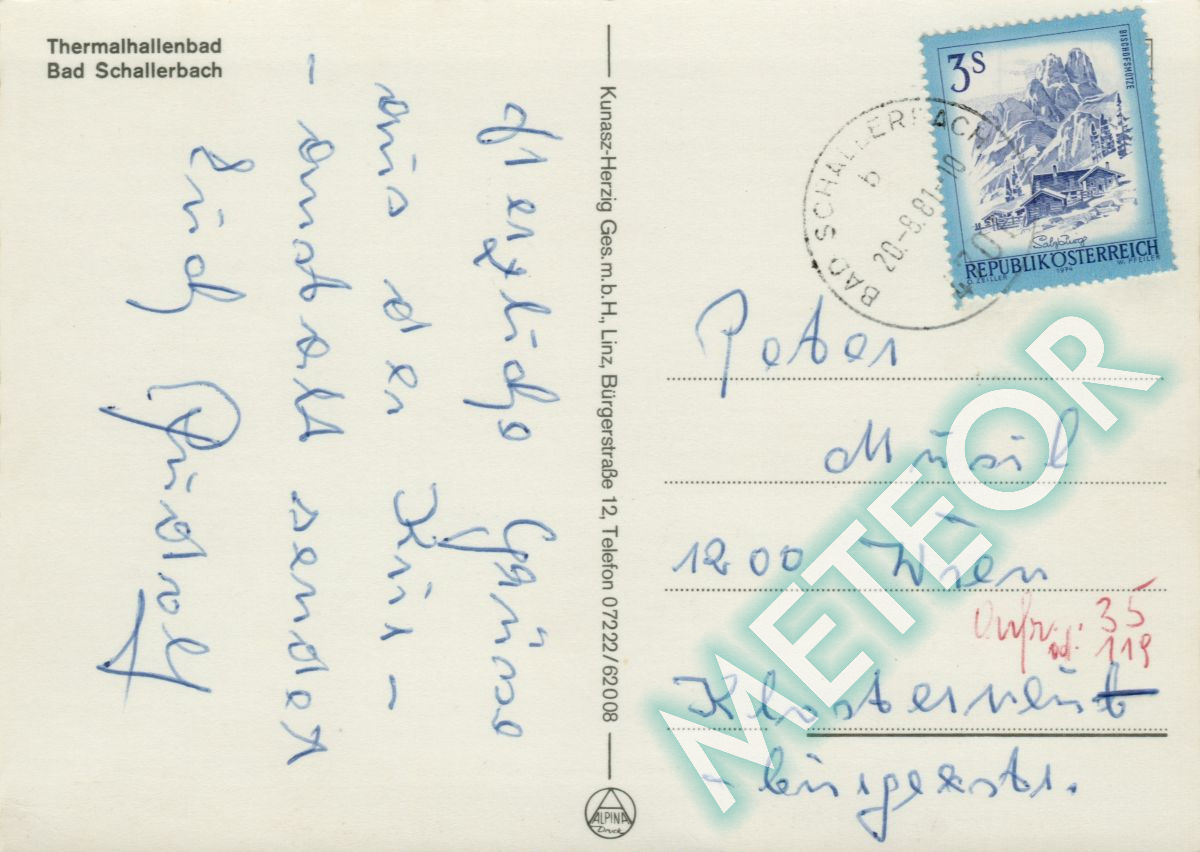 Thermalhallenbad
Bad Schallerbach
Herzliche Grüsse
aus der Kur -
- anstalt sendet
Euch Rudolf
Kunasz-Herzig Ges.m.b.H., Linz, Bürgerstraße 12, Telefon 07222/62008
ALPINA
Druck
3S
BISCHOFSMÜTZE
Salzburg
REPUBLIK ÖSTERREICH
O. ZEILLER 1974 W. PFEILER
BAD SCHALLERBACH
b
20.-8.81-10
Peter
Musil
1200 Wien
35
od. 119
Klosterneub
- burgerstr.
METEOR